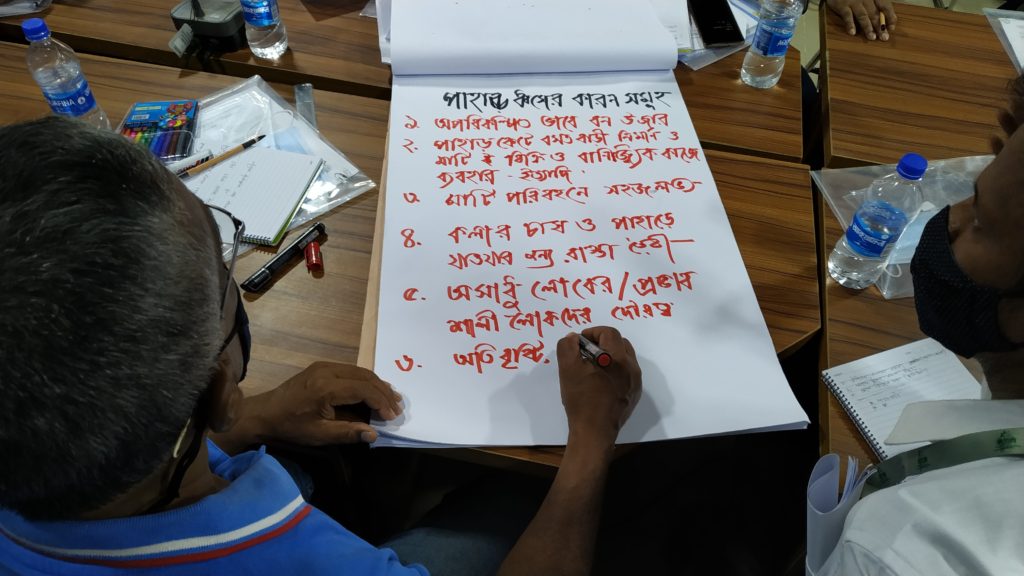 পাহাড় ধ্বসের কারন সমূহ
১. অপরিকল্পিত ভাবে বন উজার
২. পাহাড় কেটে বসত বাড়ী নির্মান ও
মাটি ই বিক্রি ও বানিজ্যিক কাজে
ব্যবহার - ইত্যাদি
৩ মাটি পরিবহনে সহজলভ্য
৪. কলার চাষ ও পাহাড়ে
যাওয়ার জন্য রাস্তা তৈরী
৫. অসাধু লোকের / প্রভাব
শালী লোকদের দৌরত্ব
৬. অতি বৃষ্টি.